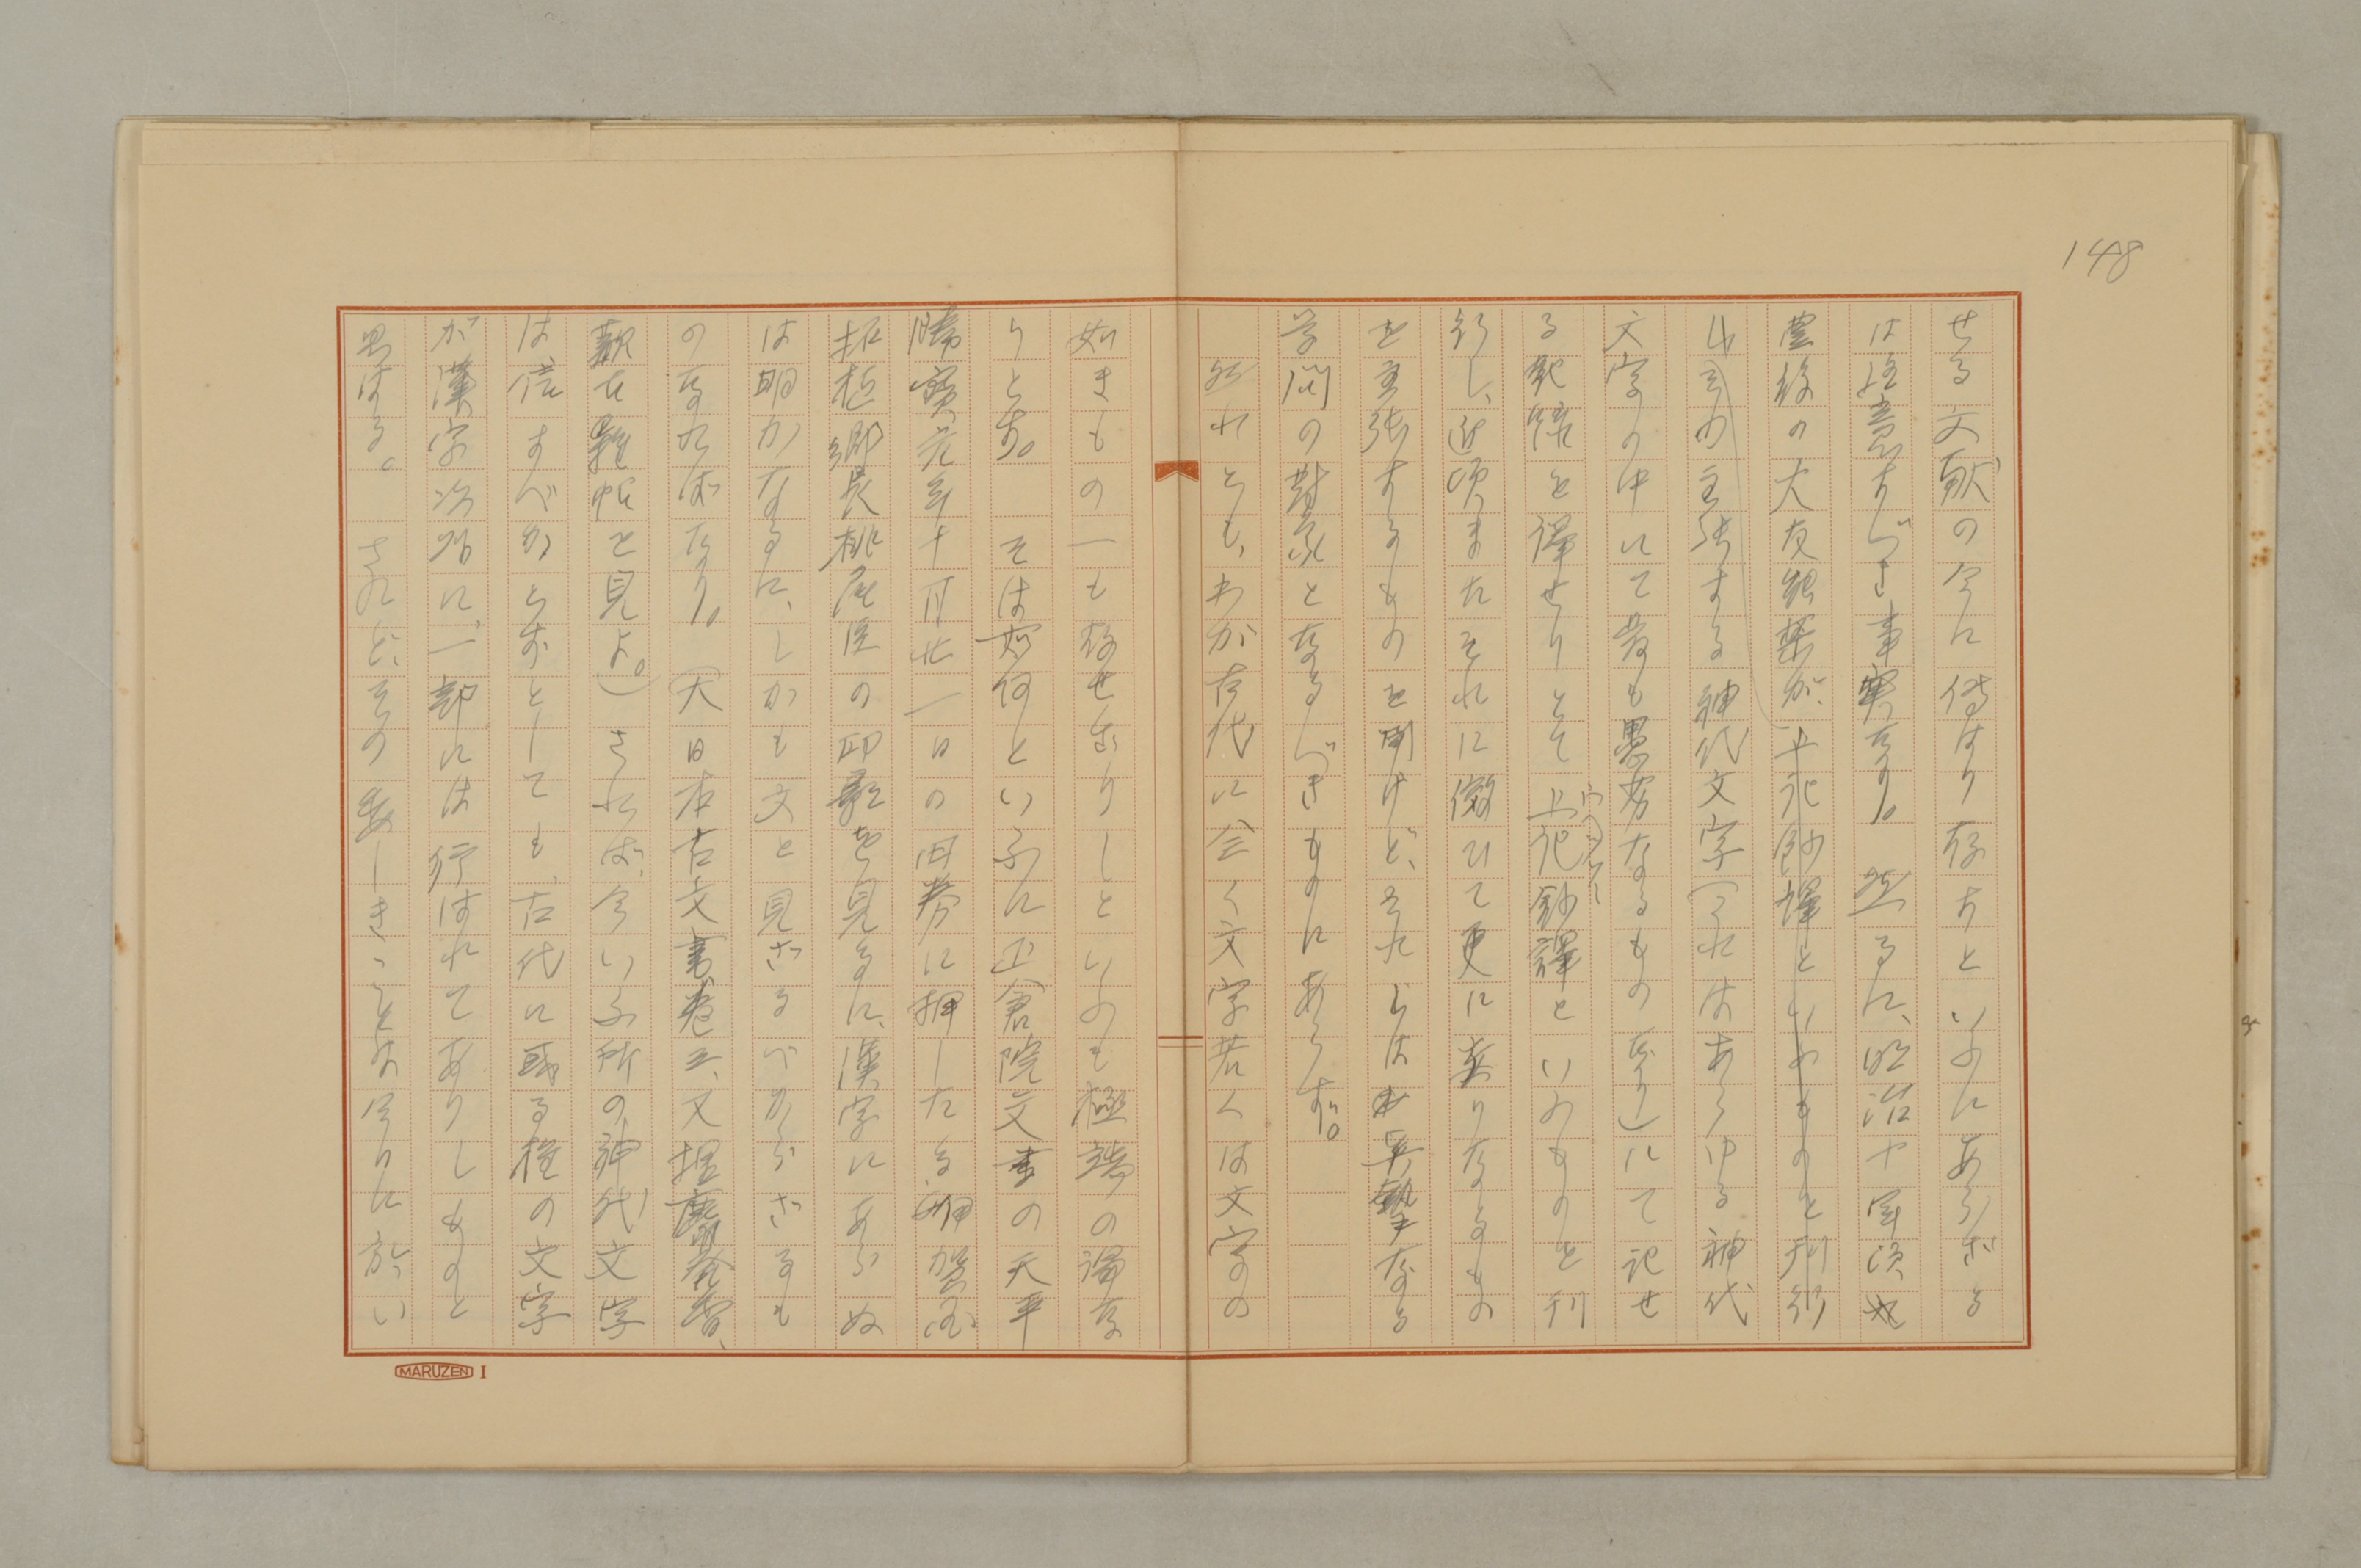 148
せる文献の今に傳はり存すといふにあらざる
は注意すべき事実なり。然るに、明治十年頃
豊後の大友能某が、上記鈔譯といふものを刊行
し、その主張する神代文字(これはあらゆる神代
文字の中にて最も愚劣なるものなり)にて記せ
る記録を譯せりとて上記鈔譯といふものを刊
行し、近頃またそれに倣ひて更に
を主張するものを聞けど、それらは真摯なる
学問の對象となるべきものにあらず。
然れども、わが古代に全く文字若くは文字の
如きものの一も存せざりしといふも極端の論な
りとす。そは如何といふに正倉院文書の天平
勝寶元年十一月廿一日の田券に押したる伊賀國
拓殖郷長の印影を見るに、漢字にあらぬ
は明かなるに、しかも文と見ざるべからざるも
のなればなり。(大日本古文書巻三、又埋麝發香、
觀古雜帖を見よ。)されば、今いふ所の神代文字
は信ずべからずとしても、古代に或る種の文字
が漢字以外に、一部には行はれてありしものと
思はる。されど、その数しきことは今日に於い
MARUZEN I